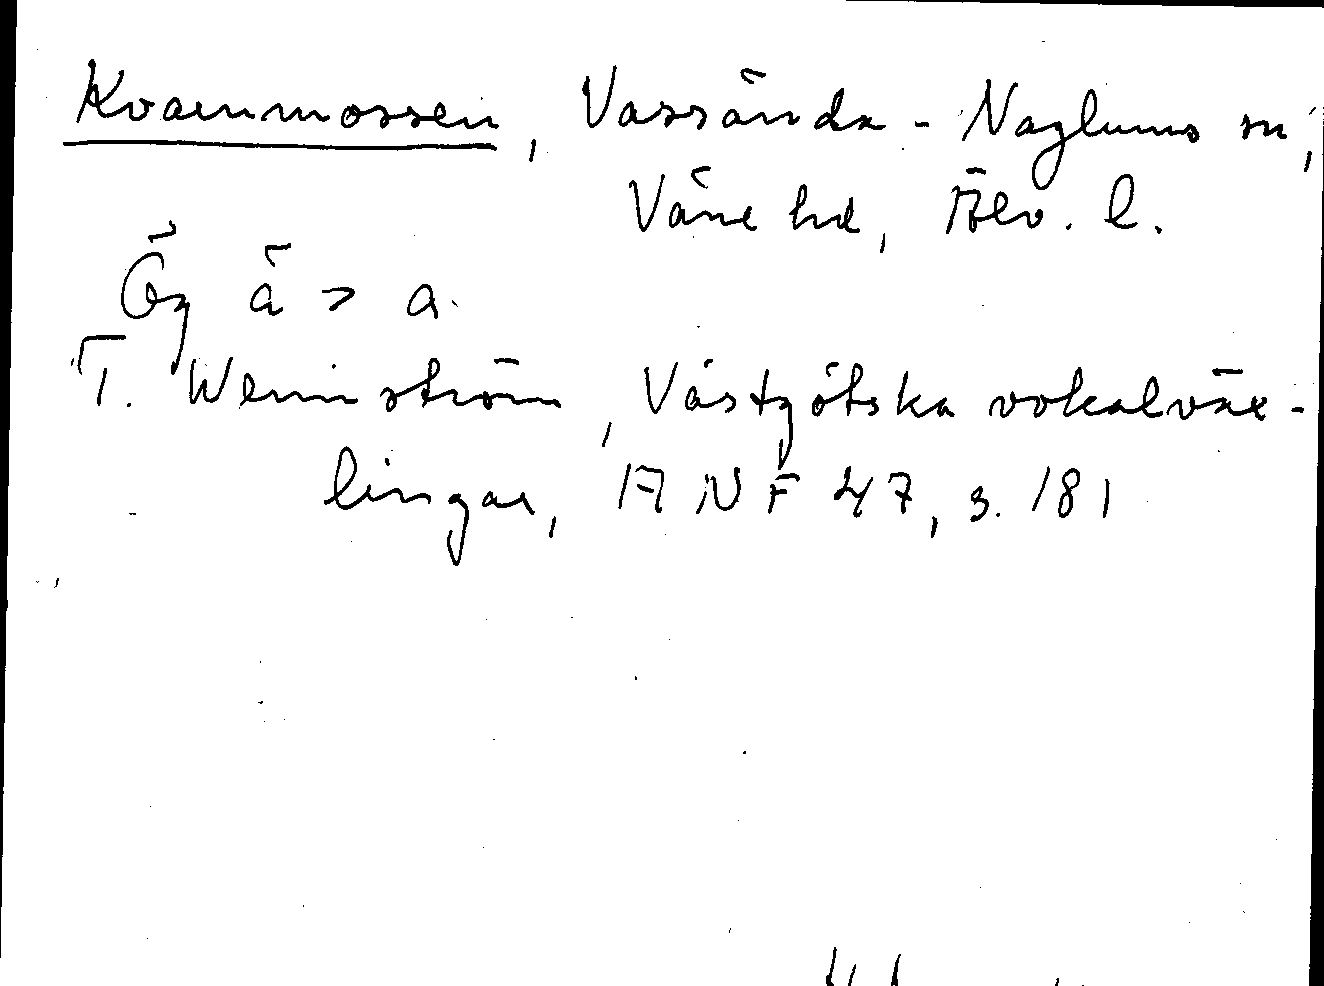 Kvarnmossen, Vassända-Naglums sn,
Väne hd, Älv. l.
Óg ä > a.
T. Wennström, Västgötska vokalväx-
lingar, ANF 47, s. 181